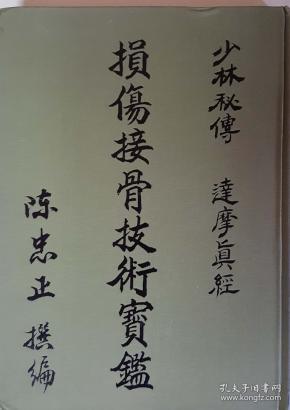 少林秘傳 達摩眞經
損傷接骨技術寶鑑
陈忠正 撰編
孔夫子旧书网